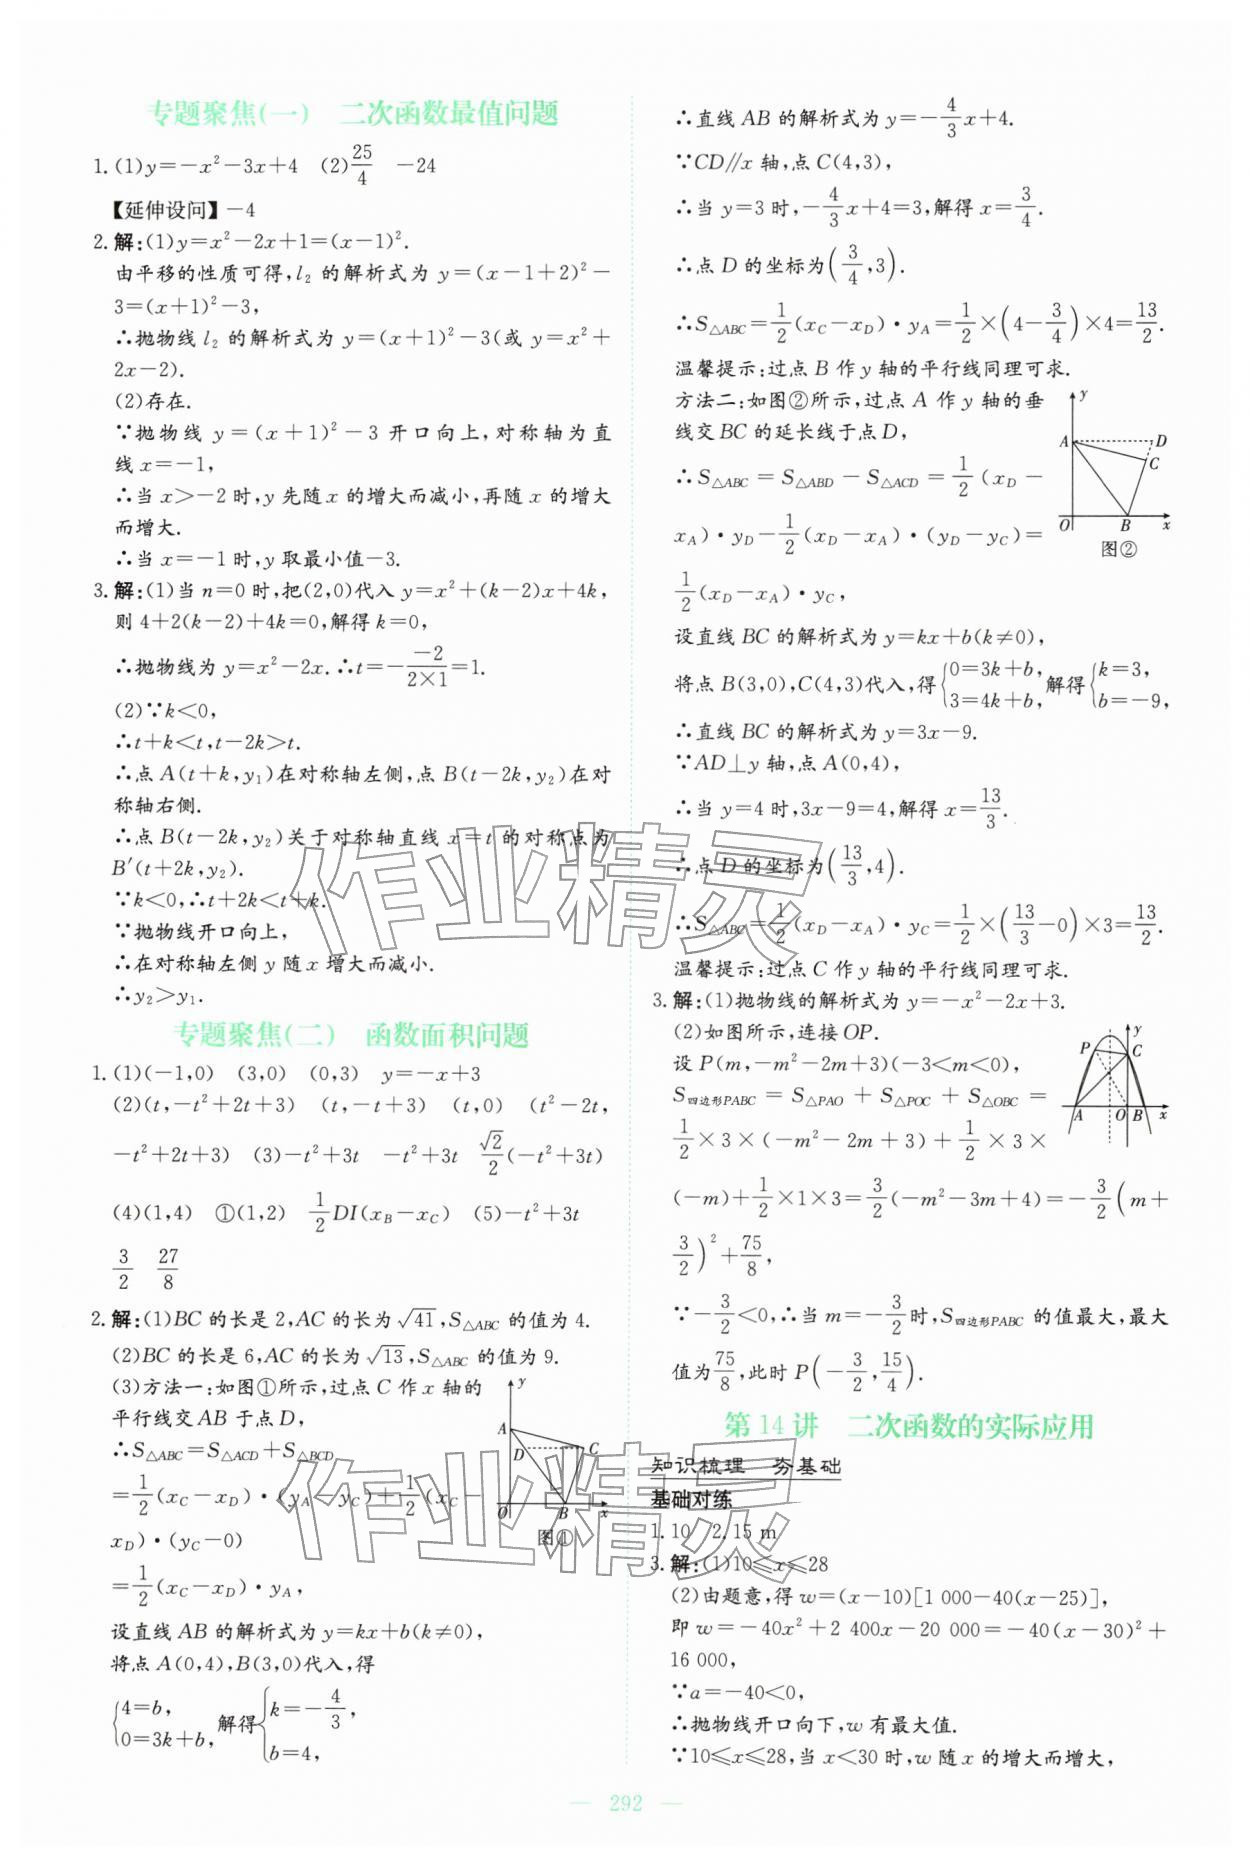 专题聚焦(一) 二次函数最值问题
1.(1)y=-x²-3x+4 (2)25/4 -24
【延伸设问】-4
2.解:(1)y=x²-2x+1=(x-1)².
由平移的性质可得,l₂ 的解析式为 y=(x-1+2)²-
3=(x+1)²-3,
∴抛物线 l₂ 的解析式为 y=(x+1)²-3(或 y=x²+
2x-2).
(2)存在.
∵抛物线 y=(x+1)²-3 开口向上,对称轴为直
线 x=-1,
∴当 x>-2 时,y 先随 x 的增大而减小,再随 x 的增大
而增大.
∴当 x=-1 时,y 取最小值-3.
3.解:(1)当 n=0 时,把(2,0)代入 y=x²+(k-2)x+4k,
则 4+2(k-2)+4k=0,解得 k=0,
∴抛物线为 y=x²-2x.∴t=-(-2)/(2×1)=1.
(2)∵k<0,
∴t+k<t,t-2k>t.
∴点 A(t+k,y₁)在对称轴左侧,点 B(t-2k,y₂)在对
称轴右侧.
∴点 B(t-2k,y₂)关于对称轴直线 x=t 的对称点为
B′(t+2k,y₂).
∵k<0,∴t+2k<t+k.
∵抛物线开口向上,
∴在对称轴左侧 y 随 x 增大而减小.
∴y₂>y₁.
专题聚焦(二) 函数面积问题
1.(1)(-1,0) (3,0) (0,3) y=-x+3
(2)(t,-t²+2t+3) (t,-t+3) (t,0) (t²-2t,
-t²+2t+3) (3)-t²+3t -t²+3t √2/2(-t²+3t)
(4)(1,4) ①(1,2) 1/2DI(x_B-x_C) (5)-t²+3t
3/2 27/8
2.解:(1)BC 的长是 2,AC 的长为√41,S△ABC 的值为 4.
(2)BC 的长是 6,AC 的长为√13,S△ABC 的值为 9.
(3)方法一:如图①所示,过点 C 作 x 轴的
平行线交 AB 于点 D,
∴S△ABC=S△ACD+S△BCD
=1/2(x_C-x_D)·(y_A-y_C)+1/2(x_C-
x_D)·(y_C-0)
=1/2(x_C-x_D)·y_A,
y
A
D
C
O
B
x
图①
设直线 AB 的解析式为 y=kx+b(k≠0),
将点 A(0,4),B(3,0)代入,得
{4=b, 0=3k+b, 解得{k=-4/3, b=4,
∴直线 AB 的解析式为 y=-4/3x+4.
∵CD∥x 轴,点 C(4,3),
∴当 y=3 时,-4/3x+4=3,解得 x=3/4.
∴点 D 的坐标为(3/4,3).
∴S△ABC=1/2(x_C-x_D)·y_A=1/2×(4-3/4)×4=13/2.
温馨提示:过点 B 作 y 轴的平行线同理可求.
方法二:如图②所示,过点 A 作 y 轴的垂
线交 BC 的延长线于点 D,
∴S△ABC=S△ABD-S△ACD=1/2(x_D-
x_A)·y_D-1/2(x_D-x_A)·(y_D-y_C)=
1/2(x_D-x_A)·y_C,
y
A
D
C
O
B
x
图②
设直线 BC 的解析式为 y=kx+b(k≠0),
将点 B(3,0),C(4,3)代入,得{0=3k+b, 3=4k+b, 解得{k=3, b=-9,
∴直线 BC 的解析式为 y=3x-9.
∵AD⊥y 轴,点 A(0,4),
∴当 y=4 时,3x-9=4,解得 x=13/3.
∴点 D 的坐标为(13/3,4).
∴S△ABC=1/2(x_D-x_A)·y_C=1/2×(13/3-0)×3=13/2.
温馨提示:过点 C 作 y 轴的平行线同理可求.
3.解:(1)抛物线的解析式为 y=-x²-2x+3.
(2)如图所示,连接 OP.
设 P(m,-m²-2m+3)(-3<m<0),
S四边形PABC=S△PAO+S△POC+S△OBC=
1/2×3×(-m²-2m+3)+1/2×3×
(-m)+1/2×1×3=3/2(-m²-3m+4)=-3/2(m+
3/2)²+75/8,
y
P
C
A
O
B
x
∵-3/2<0,∴当 m=-3/2时,S四边形PABC 的值最大,最大
值为75/8,此时 P(-3/2,15/4).
第 14 讲 二次函数的实际应用
知识梳理 夯基础
基础对练
1.10 2.15 m
3.解:(1)10≤x≤28
(2)由题意,得 w=(x-10)[1 000-40(x-25)],
即 w=-40x²+2 400x-20 000=-40(x-30)²+
16 000,
∵a=-40<0,
∴抛物线开口向下,w 有最大值.
∵10≤x≤28,当 x<30 时,w 随 x 的增大而增大,
— 292 —
作业精灵
作业精灵